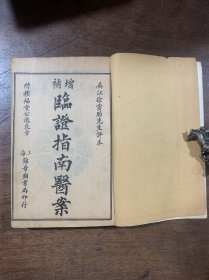 吳江徐靈胎先生評本
增補
臨證指南醫案
附種福堂公選良方
上海錦章圖書局印行